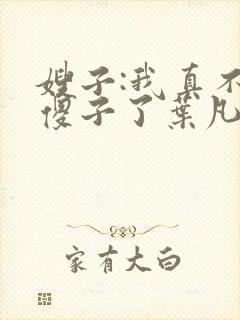 嫂子:我真不
傻子了葉凡
家有大白